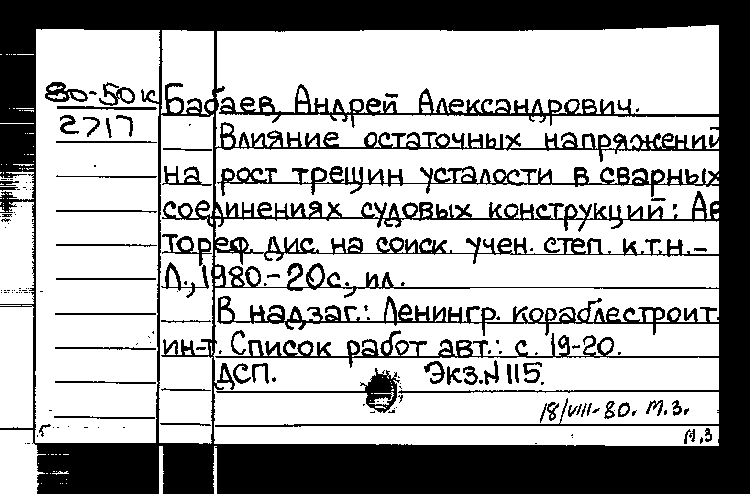 80-50к Бабаев, Андрей Александрович.
2717 Влияние остаточных напряжений
на рост трещин усталости в сварных
соединениях судовых конструкций: Ав
тореф. дис. на соиск. учен. степ. к.т.н.-
Л., 1980.-20с., ил.
В надзаг.: Ленингр. кораблестроит.
ин-т. Список работ авт.: с. 19-20.
ДСП. Экз.№115.
18/VIII-80. М.З.
М.З